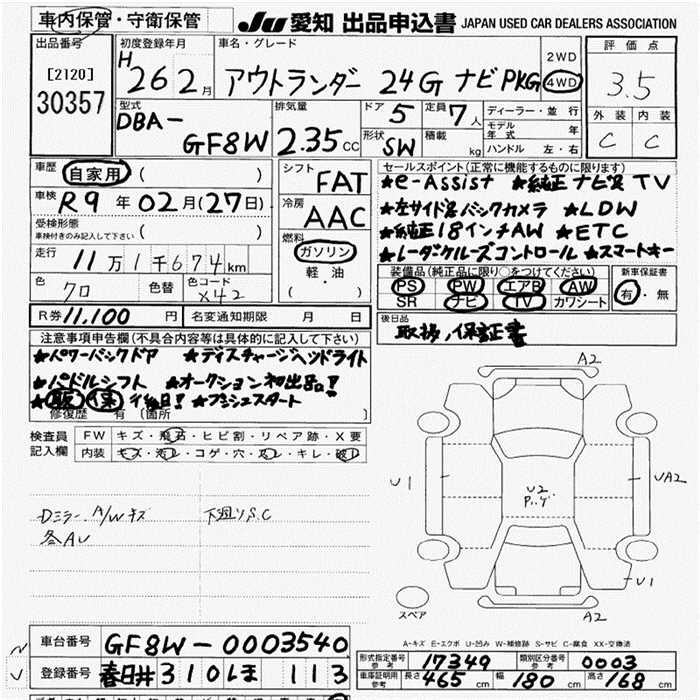 車内保管・守衛保管 JU 愛知 出品申込書 JAPAN USED CAR DEALERS ASSOCIATION
出品番号 [2120] 30357
初度登録年月 H 26 2月
車名・グレード アウトランダー 24G ナビPKG 2WD 4WD
評価点 3.5
外装 内装
C C
型式 DBA-GF8W
排気量 2.35cc
ドア 5 定員 7人
形状 SW 積載 kg
ディーラー・並行
モデル年式 年
ハンドル 左・右
車歴 自家用 ( )
車検 R9年02月(27日)
受検形態 ( )
車検付きのみ記入して下さい
走行 11万1千674km
色 クロ 色替 色コード X42
シフト FAT
冷房 AAC
燃料 ガソリン
軽・油
( )
セールスポイント(正常に機能するものに限ります)
★e-Assist ★純正ナビ&TV
★左サイド&バックカメラ ★LDW
★純正18インチAW ★ETC
★レーダクルーズコントロール ★スマートキー
装備品(純正品に限り○をつけてください) 新車保証書
PS PW エアB AW 有・無
SR ナビ TV カワシート
R券 11,100円 名変通知期限 月 日
後日品 取扱,保証書
注意事項申告欄(不具合内容等は具体的に記入して下さい)
★パワーバックドア ★ディスチャージヘッドライト
★パドルシフト ★オークション初出品!
★取 保 後日! ★プッシュスタート
修復歴 有 [箇所 ]
検査員記入欄 FW キズ・飛石・ヒビ割・リペア跡・X要
内装 キズ・汚レ・コゲ・穴・スレ・キレ・破レ
Dミラー A/Wキズ 下廻りS,C
各AU
A2
U1
U2
UA2
U1
スペア A2
A-キズ E-エクボ U-凹み W-補修跡 S-サビ C-腐食 XX-交換済
車台番号 GF8W-0003540
登録番号 春日井310ほ 113
形式指定番号 参考 17349 類別区分番号 参考 0003
車庫証明用参考 長さ 465cm 幅 180cm 高さ 168cm